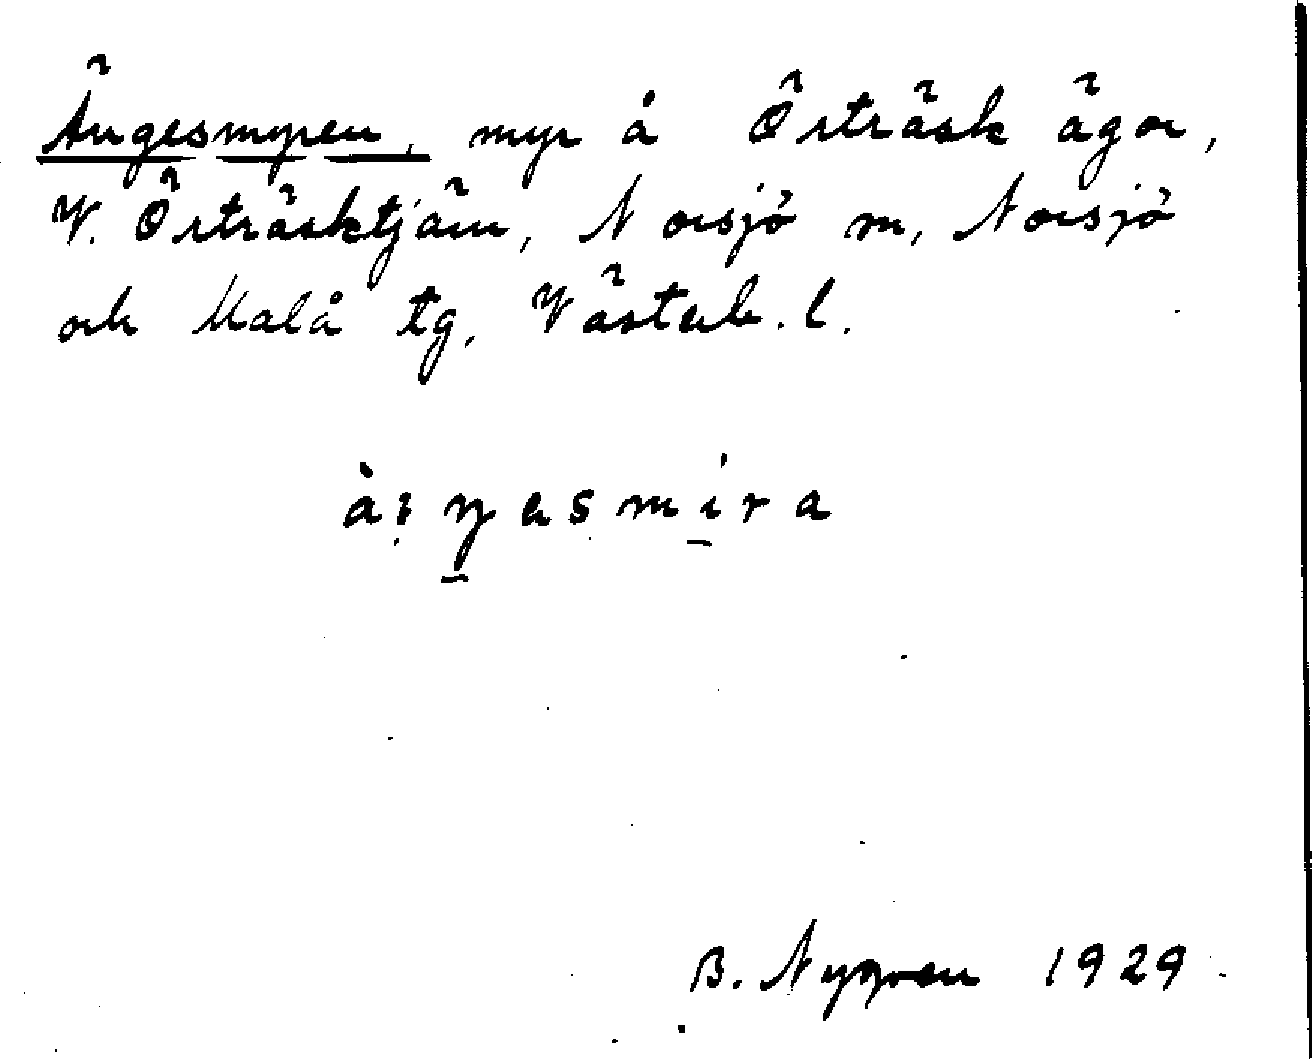 Ängesmyren, myr å Örträsk ägor,
V. Örträsktjärn, Norsjö sn, Norsjö
och Malå tg, Västerb. l.
B. Nygren 1929